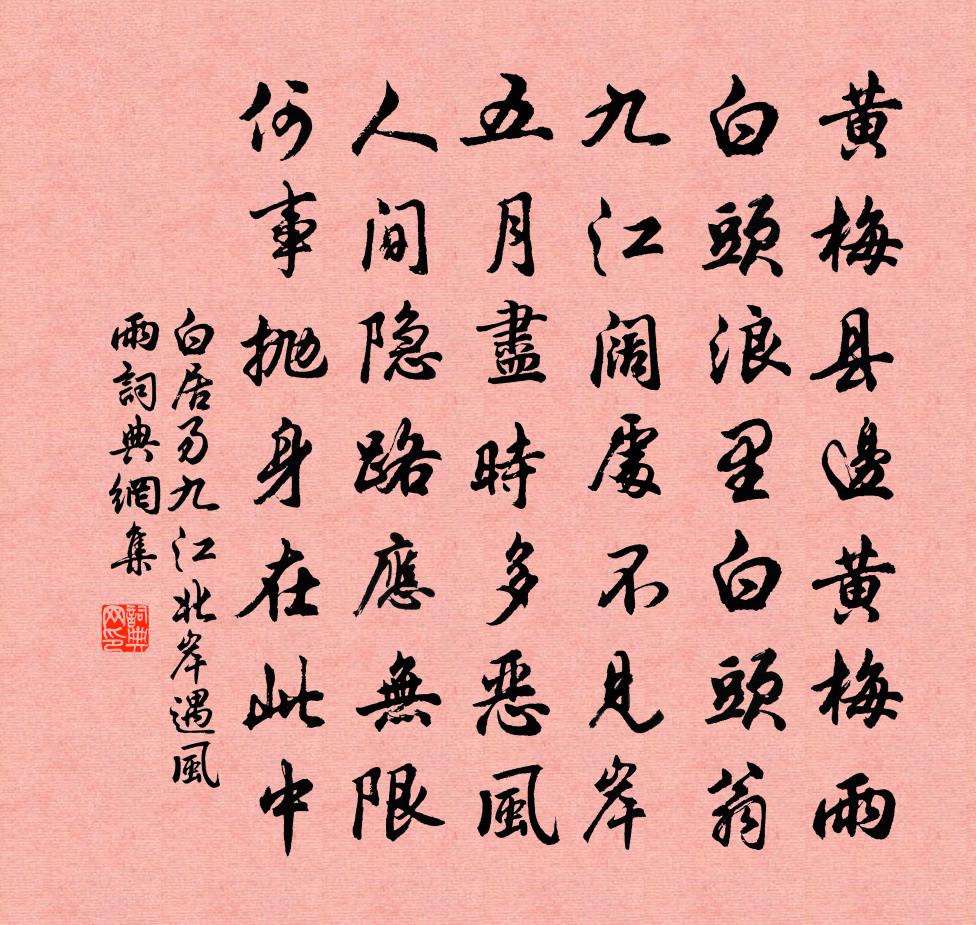 黄梅县邊黄梅雨
白頭浪里白頭翁
九江闊處不見岸
五月盡時多恶風
人間隐路應無限
何事抛身在此中
白居易九江北岸遇風
雨詞典網集
詞典
网印